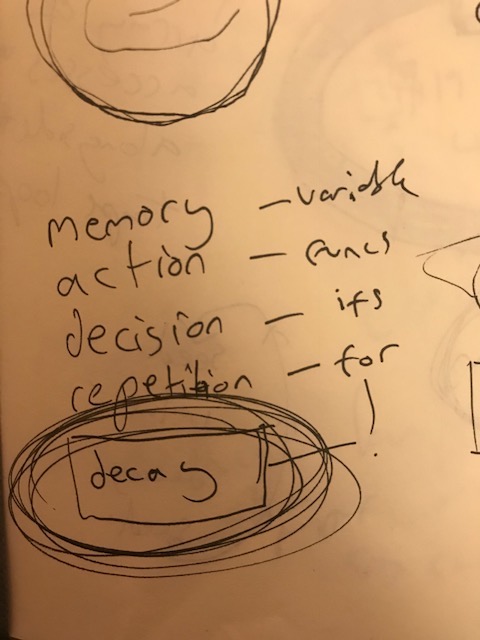 memory - variable
action - funcs
decision - ifs
repetition - for
decay - !